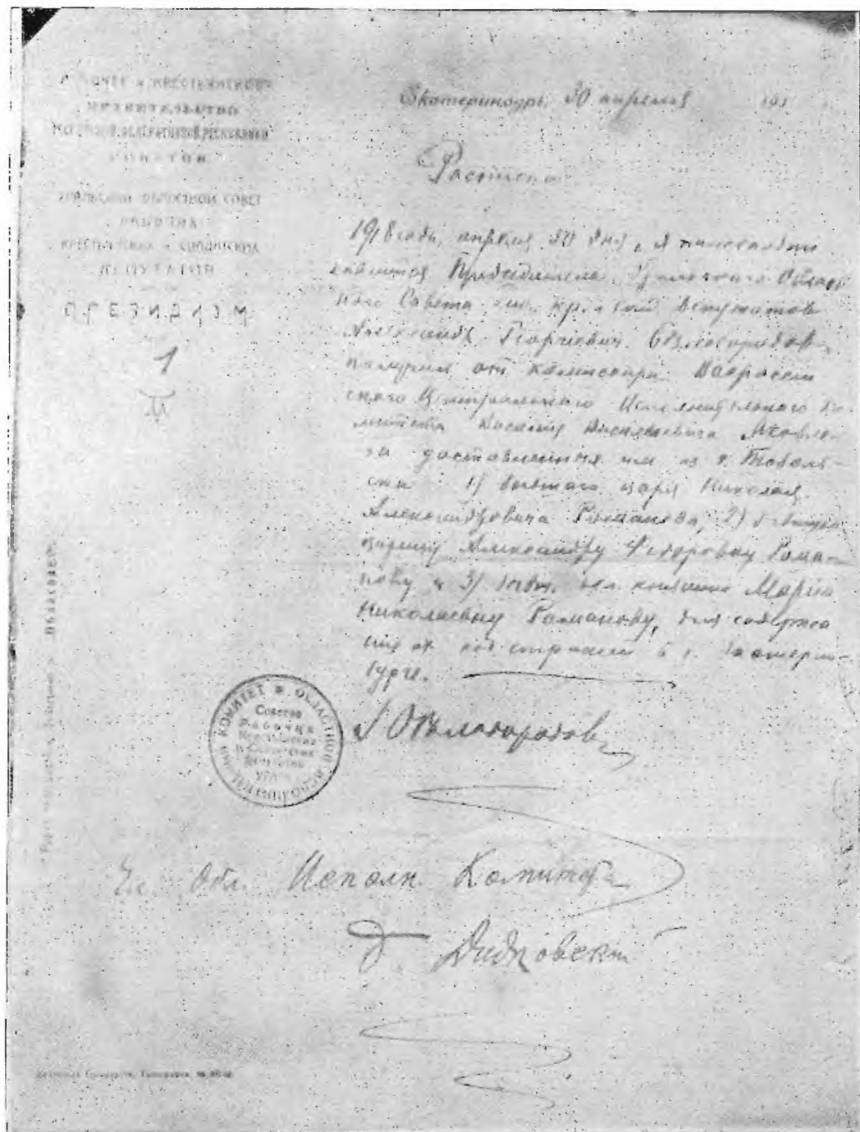 РАБОЧЕЕ и КРЕСТЬЯНСКОЕ
ПРАВИТЕЛЬСТВО
РОССІЙСКОЙ ФЕДЕРАТИВНОЙ РЕСПУБЛИКИ
СОВЕТОВ
УРАЛЬСКИЙ ОБЛАСТНОЙ СОВЕТ
РАБОЧИХ
КРЕСТЬЯНСКИХ и СОЛДАТСКИХ
ДЕПУТАТОВ
ПРЕЗИДИУМ
Екатеринбург, 30 апреля 191
Расписка
1918 года, апреля 30 дня, я нижеподпи
савшийся Председатель Уральского Област
ного Совета Раб., кр. и Солд. Депутатов
Александр Георгиевич Белобородов
получил от комиссара Всероссий
ского Центрального Исполнительного Ко
митета Василия Васильевича Яковле-
ва доставленных им из г. Тоболь-
ска 1) бывшего царя Николая
Александровича Романова, 2) бывшую
царицу Александру Федоровну Рома-
нову и 3) бывш. вел. княжну Марию
Николаевну Романову, для содержа
ния их под стражей в г. Екатерин-
бурге.
А Белобородов
ОБЛАСТНОЙ ИСПОЛНИТЕЛЬНЫЙ КОМИТЕТ
Советов
Рабочих
Крестьянских
и Солдатских
Депутатов
Урала
Чл. Обл. Исполн. Комитета
Дидковский